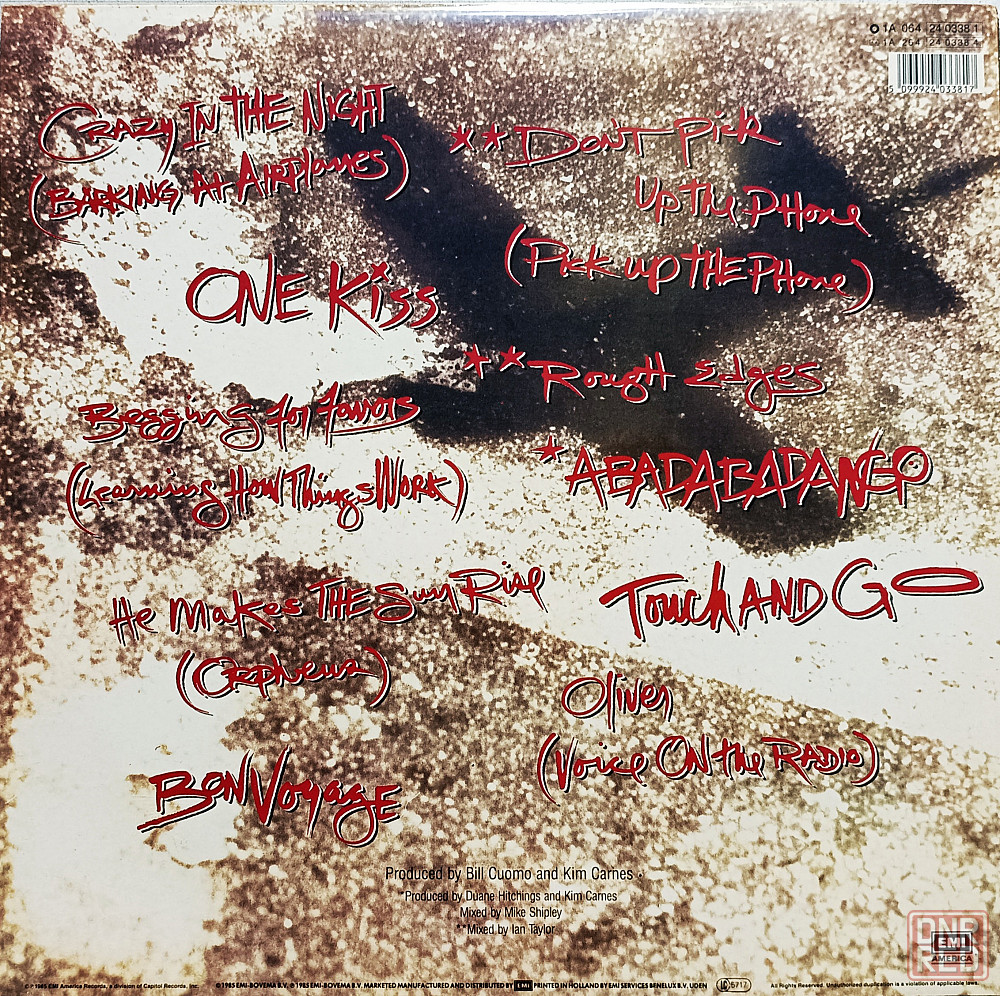 1A 064 24 0338 1
1A 264 24 0338 4
5 099924 033817
CRAZY IN THE NIGHT
(BARKING At AIRPlanes)
ONE KISS
Begging for favors
(Learning How ThingsWORK)
He Makes THE Sun Rise
(ORpheus)
BON VoyagE
**DON'T Pick
Up the PHone
(Pick up THE PHone)
**Rough Edges
*ABADABADANGO
Touch AND GO
Oliver
(Voice ON the RADIO)
Produced by Bill Cuomo and Kim Carnes •
*Produced by Duane Hitchings and Kim Carnes
Mixed by Mike Shipley
**Mixed by Ian Taylor
DNR
RED
EMI
AMERICA
1985 EMI America Records, a division of Capitol Records, Inc.
©1985 EMI-BOVEMA B.V. ℗1985 EMI-BOVEMA B.V. MARKETED MANUFACTURED AND DISTRIBUTED BY EMI PRINTED IN HOLLAND BY EMI SERVICES BENELUX B.V. UDEN
LC 5717
All Rights Reserved. Unauthorized duplication is a violation of applicable laws.